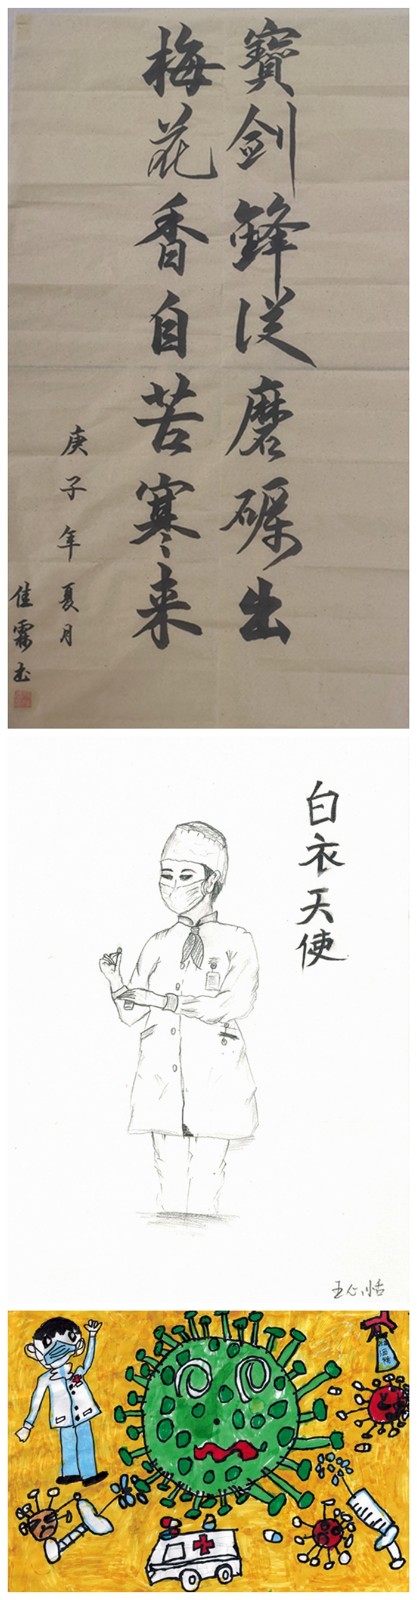 寶劍鋒從磨礪出
梅花香自苦寒来
庚子年夏月
佳霖书
白衣天使
王心恬